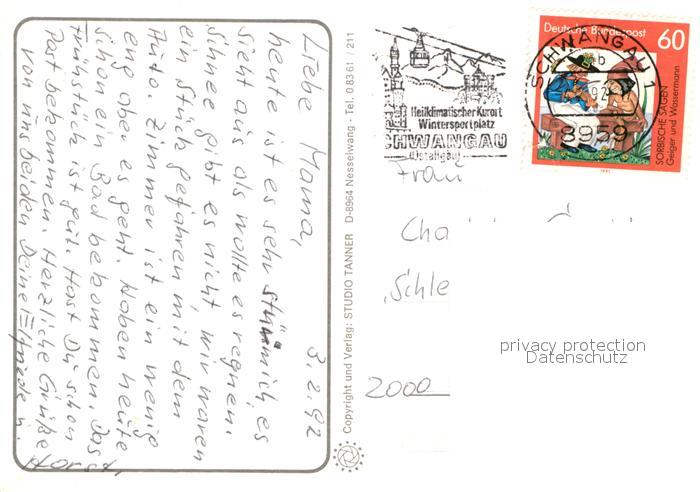 3.2.92
Liebe Mama,
heute ist es sehr stürmich, es
sieht aus als wollte es regnen.
Schnee gibt es nicht, wir waren
ein Stück gefahren mit dem
Zimmer ist ein wenig
eng aber es geht. Haben heute
schon ein Bad bekommen. Das
Frühstück ist gut. Hast Du schon
Post bekommen. Herzliche Grüße
von uns beiden Deine Elfriede u.
Copyright und Verlag: STUDIO TANNER D-8964 Nesselwang - Tel. 08361 / 211
Heilklimatischer Kurort
Wintersportplatz
CHWANGAU
(Ostallgäu)
SCHWANGAU 1
b
8959
Deutsche Bundespost
60
SORBISCHE SAGEN
Geiger und Wassermann
Frau
Cha
Schle
2000
privacy protection
Datenschutz